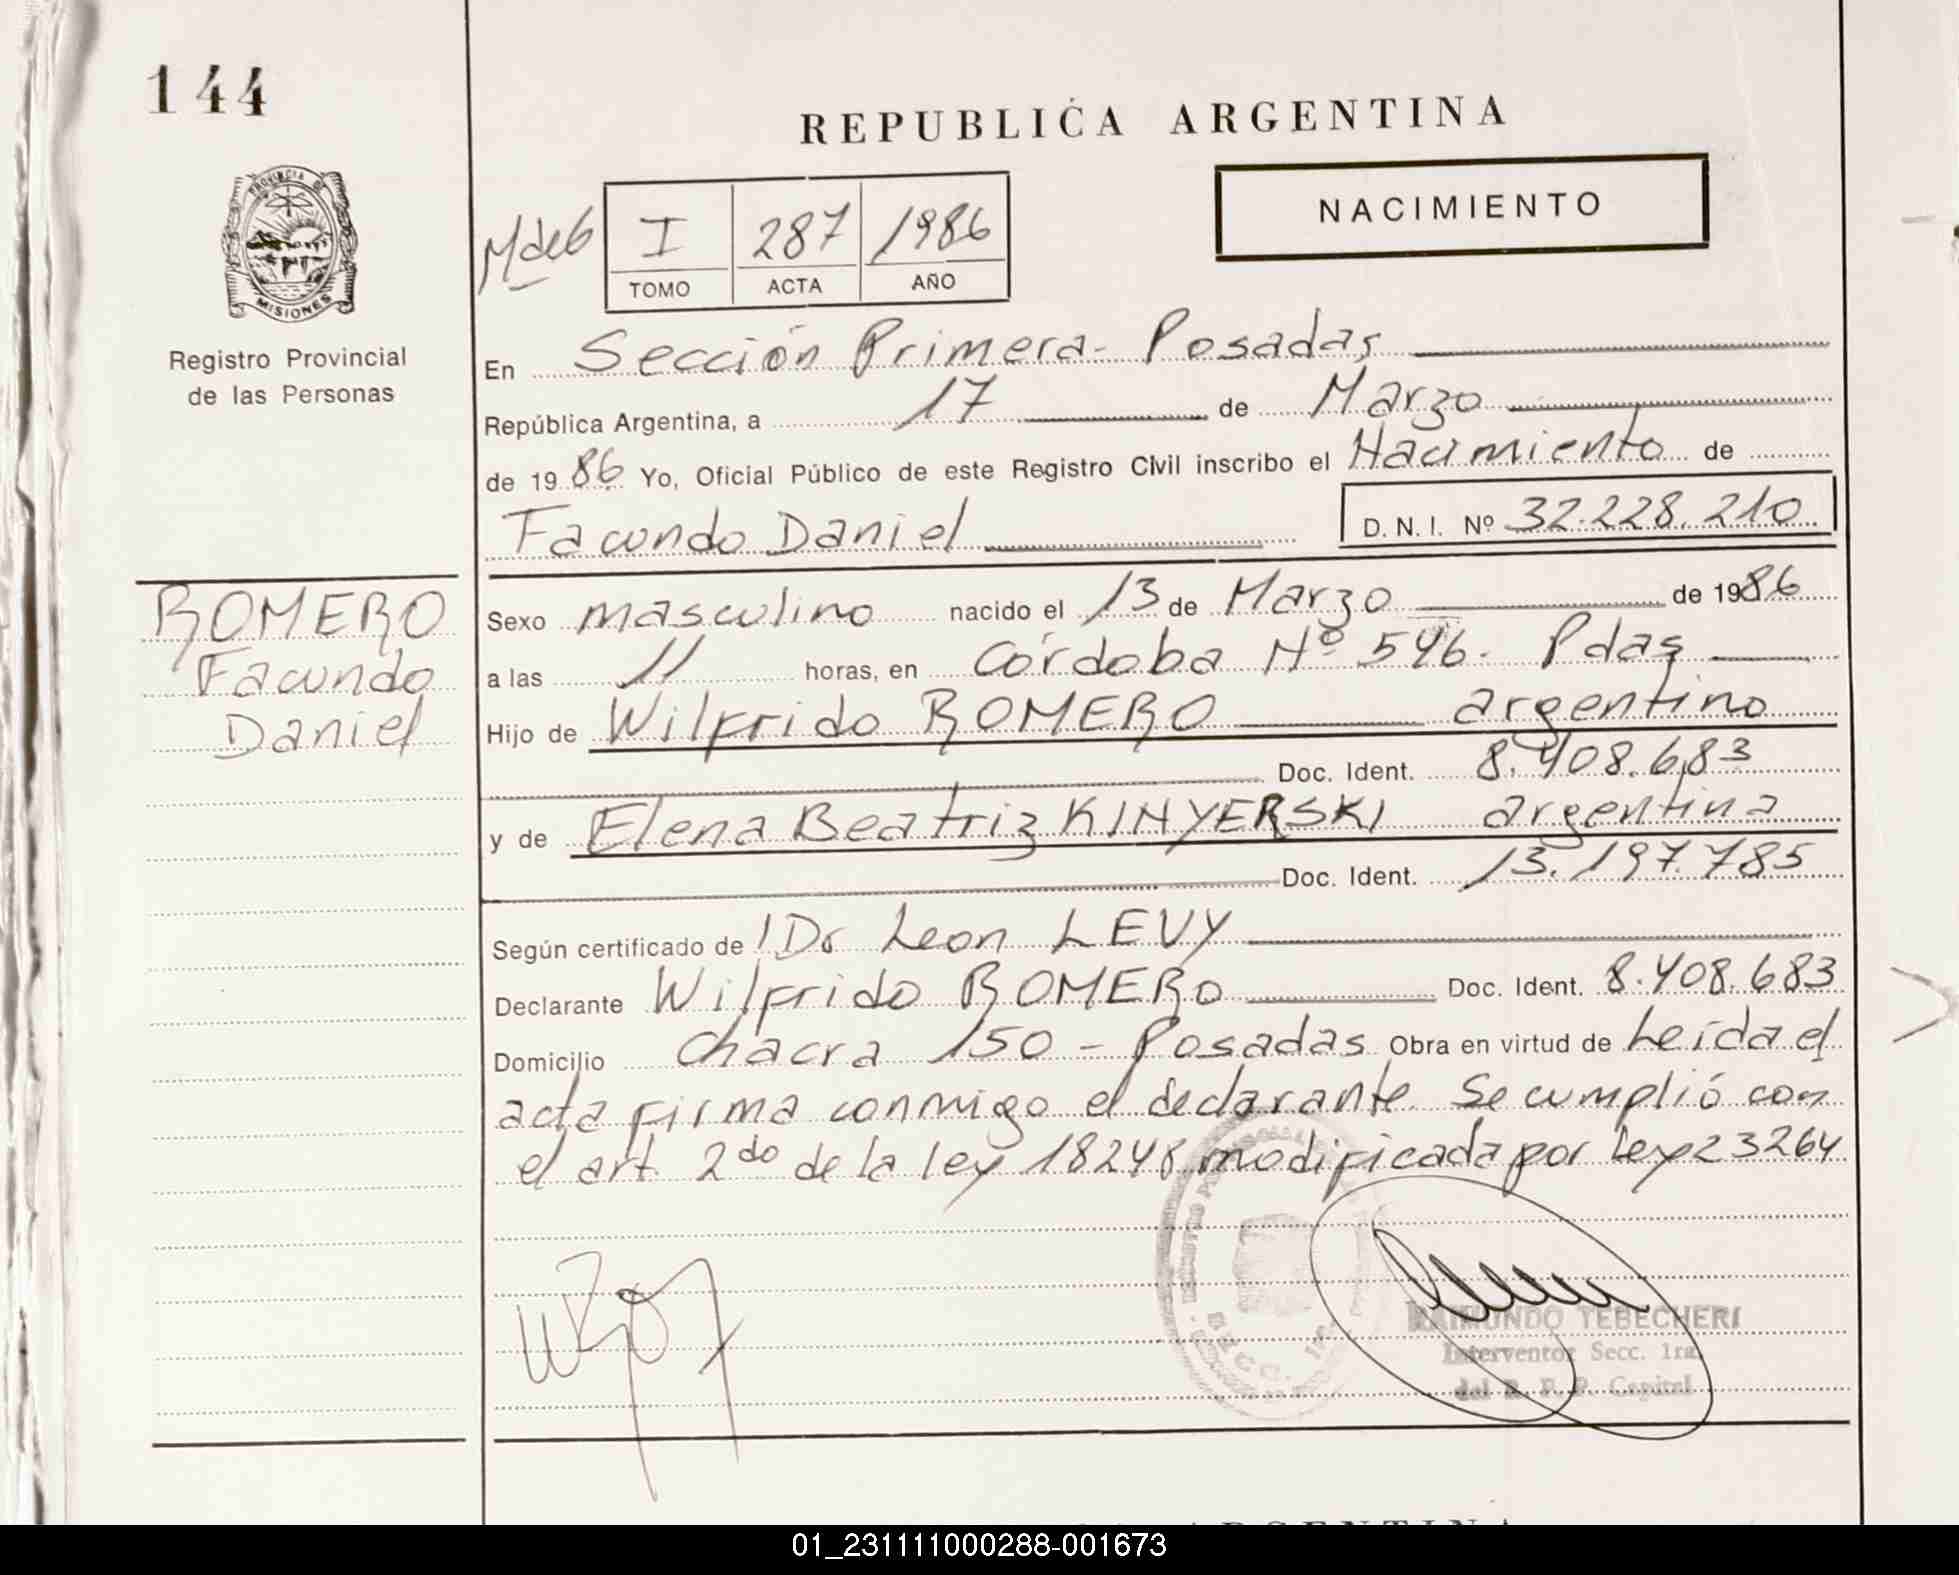 144
REPUBLICA ARGENTINA
PROVINCIA DE
MISIONES
Registro Provincial
de las Personas
I 287 1986
TOMO ACTA AÑO
NACIMIENTO
En Sección Primera- Posadas
República Argentina, a 17 de Marzo
de 1986 Yo, Oficial Público de este Registro Civil inscribo el Nacimiento de
Facundo Daniel D. N. I. Nº 32.228.210
ROMERO
Facundo
Daniel
Sexo masculino nacido el 13 de Marzo de 1986
a las 11 horas, en Córdoba Nº 546. Pdas
Hijo de Wilfrido ROMERO argentino
Doc. Ident. 8.408.683
y de Elena Beatriz KINYERSKI argentina
Doc. Ident. 13.197.785
Según certificado de Dr Leon LEVY
Declarante Wilfrido ROMERO Doc. Ident. 8.408.683
Domicilio Chacra 150 - Posadas Obra en virtud de Leída el
acta firma conmigo el declarante. Se cumplió con
el art. 2do de la ley 18248 modificada por Ley 23264
RAIMUNDO TEBECHERI
Interventor Secc. 1ra.
del R. P. P. Capital
ARGENTINA
01_231111000288-001673